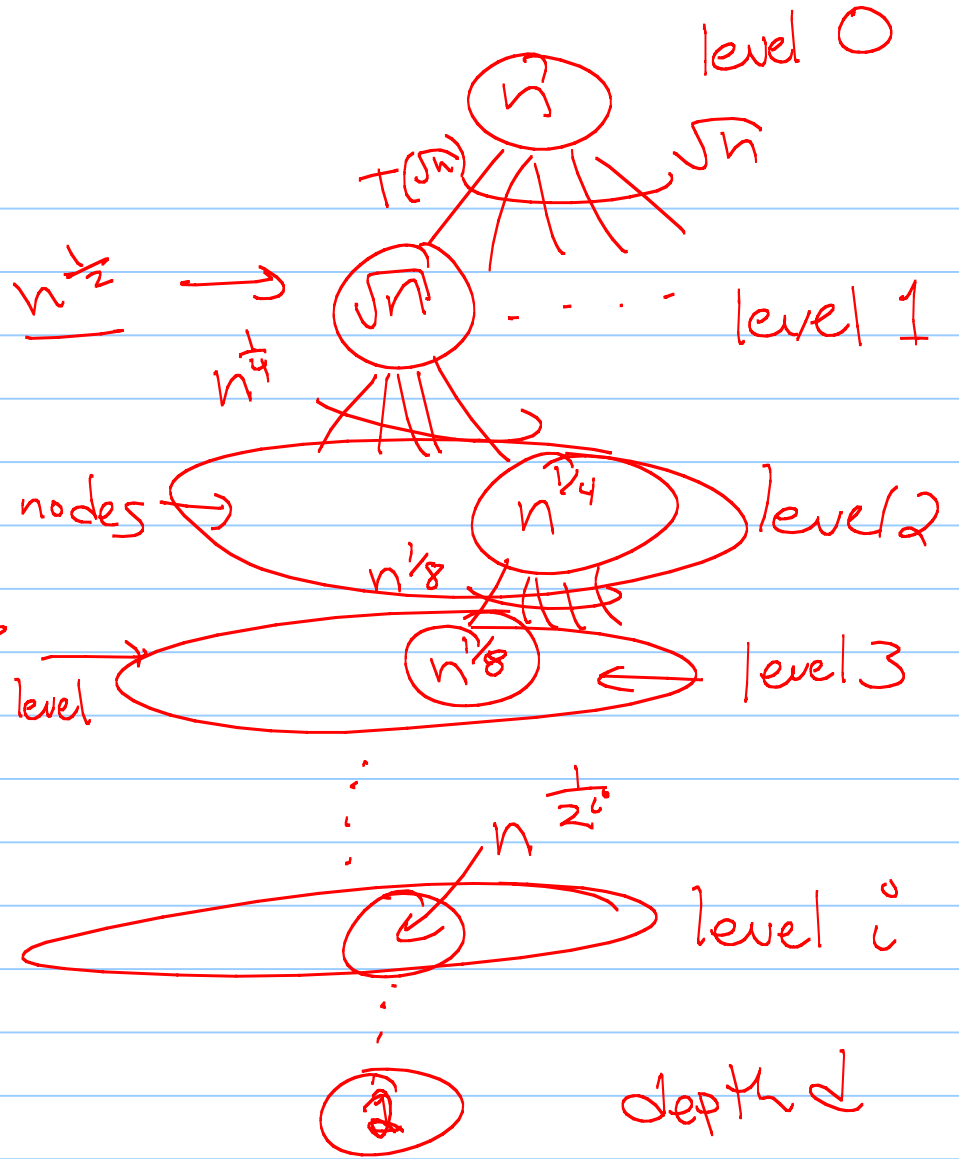 level 0
n
T(√n) √n
n^{1/2} → √n · · · · level 1
n^{1/4}
nodes → n^{1/4} level 2
n^{1/8}
→ n^{1/8} ← level 3
level
n^{1/2^i}
level i
2 depth d